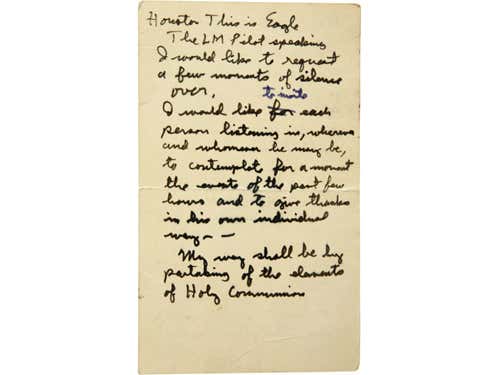 Houston This is Eagle
The LM Pilot speaking
I would like to request
a few moments of silence
over.
to invite
I would like for each
person listening in, wherever
and whomever he may be,
to contemplate for a moment
the events of the past few
hours and to give thanks
in his own individual
way - -
My way shall be by
partaking of the elements
of Holy Communion